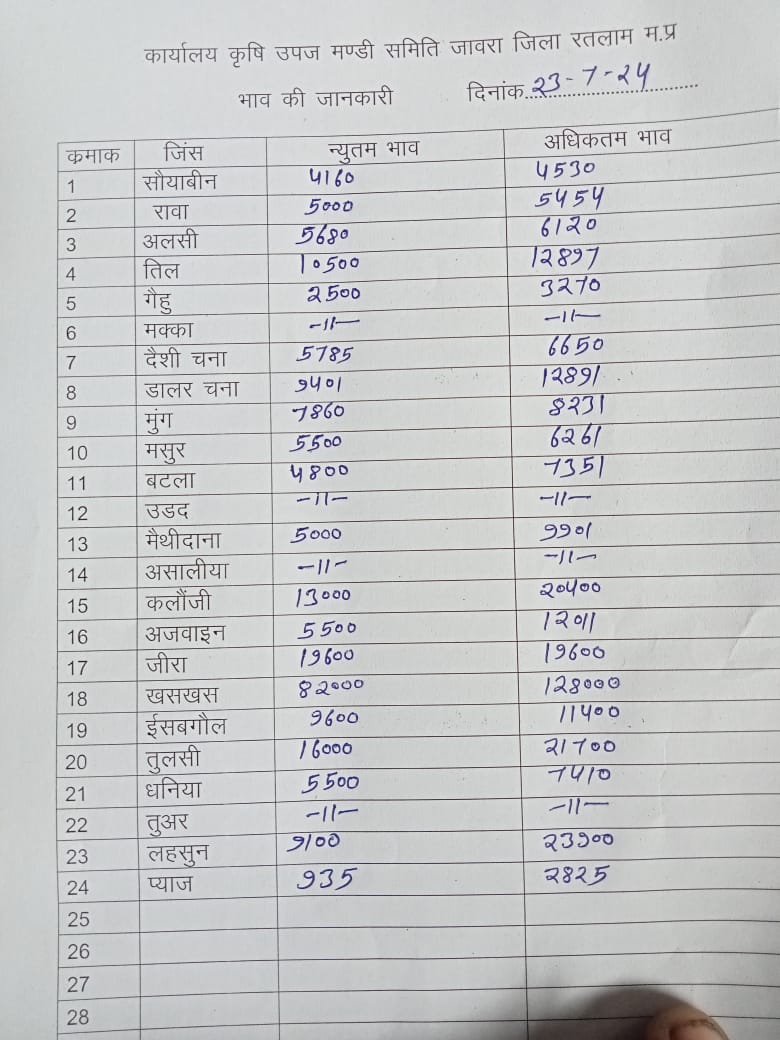 कार्यालय कृषि उपज मण्डी समिति जावरा जिला रतलाम म.प्र
भाव की जानकारी दिनांक..23-7-24
क्रमाक जिंस न्युतम भाव अधिकतम भाव
1 सौयाबीन 4160 4530
2 रावा 5000 5454
3 अलसी 5680 6120
4 तिल 10500 12897
5 गैहु 2500 3270
6 मक्का -11- -11-
7 दैशी चना 5785 6650
8 डालर चना 9401 12891
9 मुंग 7860 8231
10 मसुर 5500 6261
11 बटला 4800 7351
12 उडद -11- -11-
13 मैथीदाना 5000 9901
14 असालीया -11- -11-
15 कलौंजी 13000 20400
16 अजवाइन 5500 12011
17 जीरा 19600 19600
18 खसखस 82000 128000
19 ईसबगौल 9600 11400
20 तुलसी 16000 21700
21 धनिया 5500 7410
22 तुअर -11- -11-
23 लहसुन 9100 23900
24 प्याज 935 2825
25
26
27
28